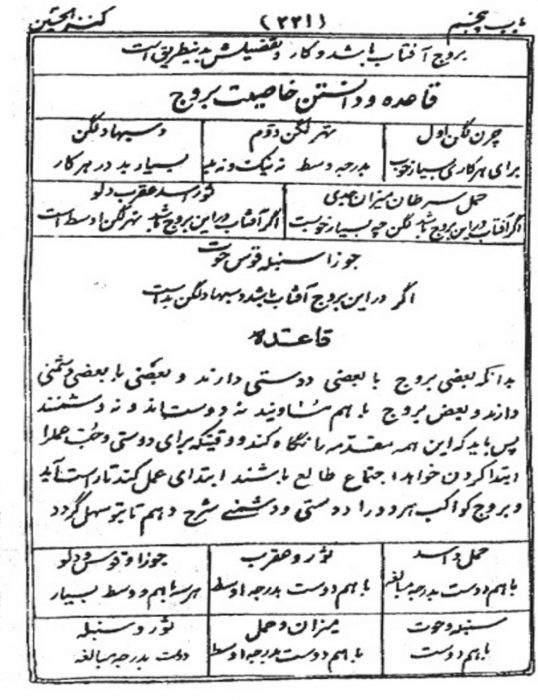 باب پنجم (۲۲۱) کنز الحسین
بروج آفتاب باشد و کار و تفصیلش بدینطریق است
قاعده و دانستن خاصیت بروج
چرن لگن اول مهر لگن دوم دسبهاو لگن
برای هر کاری بسیار خوب بدرجه وسط نه نیک و نه بد بسیار بد در هر کار
حمل سرطان میزان جدی ثور اسد عقرب دلو
اگر آفتاب در این بروج باشد لگن چر بسیار خوبست اگر آفتاب در این بروج باشد مهر لگن اوسط است
جوزا سنبله قوس حوت
اگر در این بروج آفتاب باشد دسبهاو لگن بد است
قاعده
بدانکه بعضی بروج با بعضی دوستی دارند و بعضی با بعضی دشمنی
دارند و بعض بروج با هم مساویند نه دوست‌اند و نه دشمنند
پس باید که این همه مقدمه را نگاه کند و وقتیکه برای دوستی و حُبّ عمل را
ابتدا کردن خواهد اجتماع طالع باشند ابتدای عمل کند تا راست آید
و بروج کواکب هر دو را دوستی و دشمنی شرح دهم تا بتو سهل گردد
حمل و اسد ثور و عقرب جوزا و قوس و دلو
با هم دوست بدرجه مبالغه با هم دوست بدرجه اوسط هر سه با هم دوست بسیار
سنبله و حوت میزان و حمل ثور و سنبله
با هم دوست با هم دوست بدرجه اوسط دوست بدرجه مبالغه